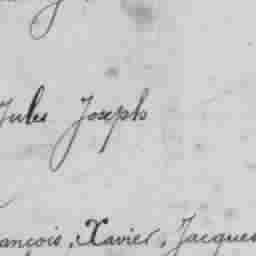 Jules Joseph
ançois, Xavier, Jacques